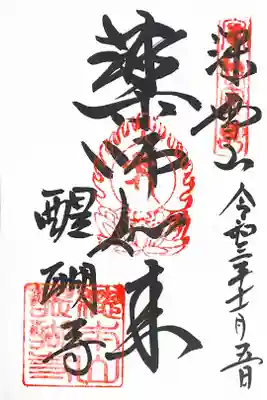 深雪山
令和三年十一月五日
薬師如来
醍醐寺